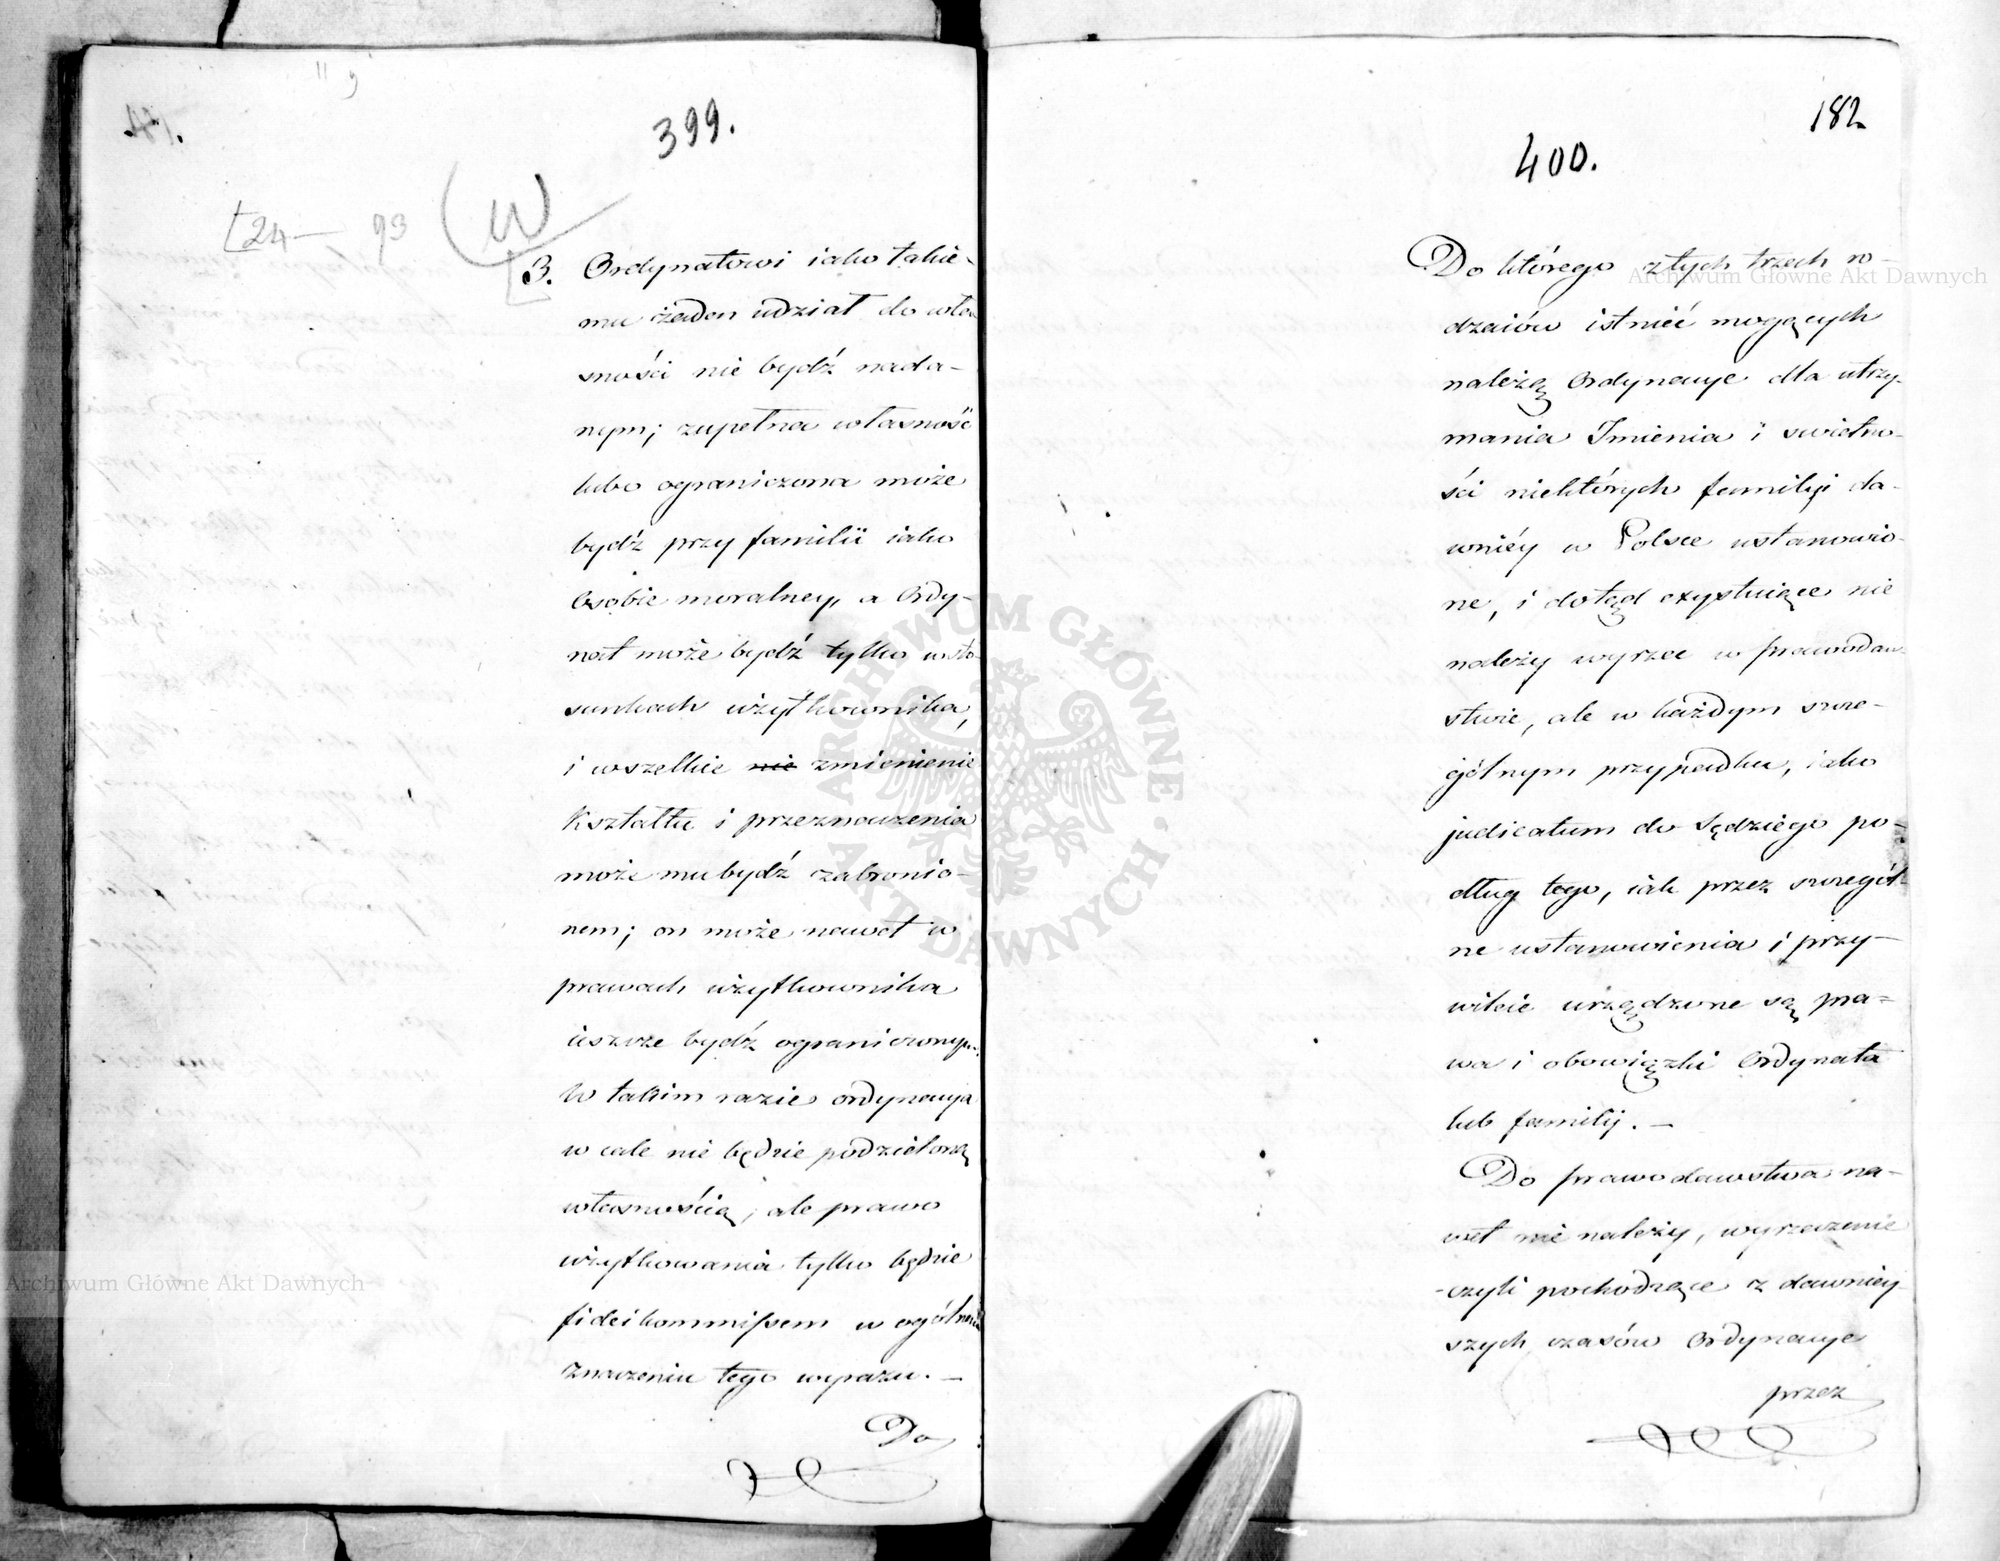 399.
[24— 93
W
3. Ordynatowi iako takie-
mu żaden udział do wła
sności nie bydź nada-
nym; zupełna własność
lub ograniczona może
bydź przy familii iako
Osobie moralney, a Ordy-
nat może bydź tylko w sto-
sunkach użytkownika,
i wszelkie nie zmienienie
Kształtu i przeznaczenia
może mu bydź zabronio-
nem; on może nawet w
prawach użytkownika
ieszcze bydź ograniczonym.
W takim razie ordynacya
w cale nie będzie podzieloną
własnością, ale prawo
użytkowania tylko będzie
fideikommissem w ogólném
znaczeniu tego wyrazu. —
Do
182
400.
Do którego z tych trzech ro-
dzaiów istnieć mogących
należą Ordynacye dla utrzy-
mania Imienia i swietno-
ści niektórych familyi da-
wniéy w Polsce ustanowio-
ne, i dotąd exystuiące nie
należy wyrzec w prawodaw-
stwie, ale w każdym szcze-
gólnym przypadku, iako
judicatum do Sędziego po-
dług tego, iak przez szczegól-
ne ustanowienia i przy-
wileie urządzone są pra-
wa i obowiązki Ordynata
lub familij. —
Do prawodawstwa na-
wet nie należy, wyrzeczenie
-czyli pochodzące z dawniey-
szych czasów Ordynacye
przez
ARCHIWUM GŁÓWNE AKT DAWNYCH
Archiwum Główne Akt Dawnych
Archiwum Główne Akt Dawnych